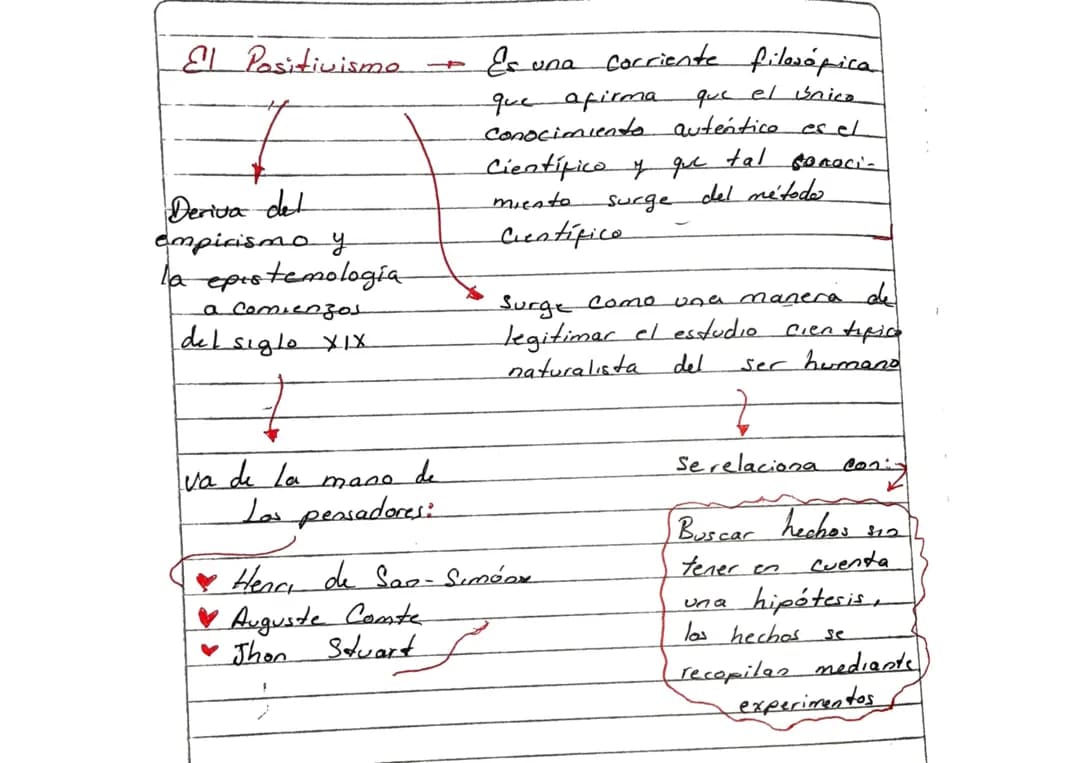 El Positivismo → Es una corriente filosófica
que afirma que el único
conocimiento auténtico es el
Científico y que tal conoci-
miento surge del método
Científico
Deriva del
empirismo y
la epistemología
a comienzos
del siglo XIX
Surge como una manera de
legitimar el estudio científico
naturalista del ser humano
va de la mano de
los pensadores:
Henri de San-Simón
Auguste Comte
Jhon Stuart
se relaciona con:
Buscar hechos sin
tener en cuenta
una hipótesis,
los hechos se
recopilan mediante
experimentos